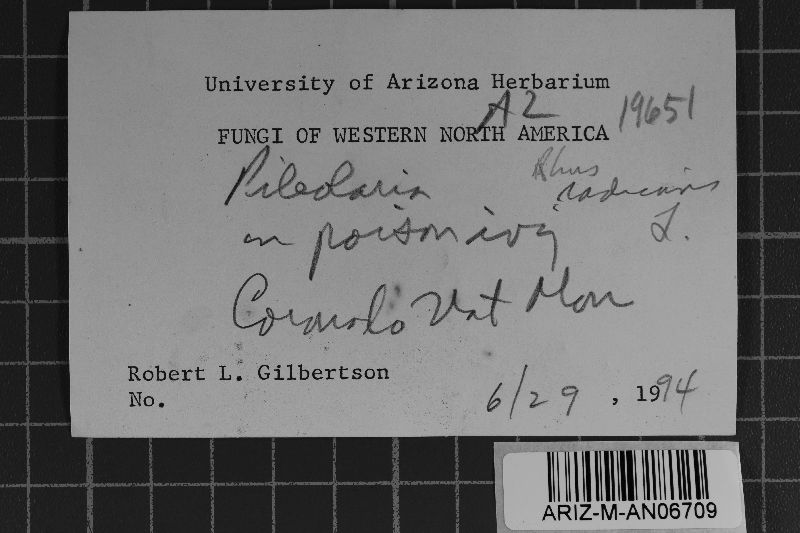 University of Arizona Herbarium
AZ 19651
FUNGI OF WESTERN NORTH AMERICA
Pileolaria
Rhus radicans L.
on poison ivy
Coronado Nat Mon
Robert L. Gilbertson
No.
6/29, 1994
ARIZ-M-AN06709